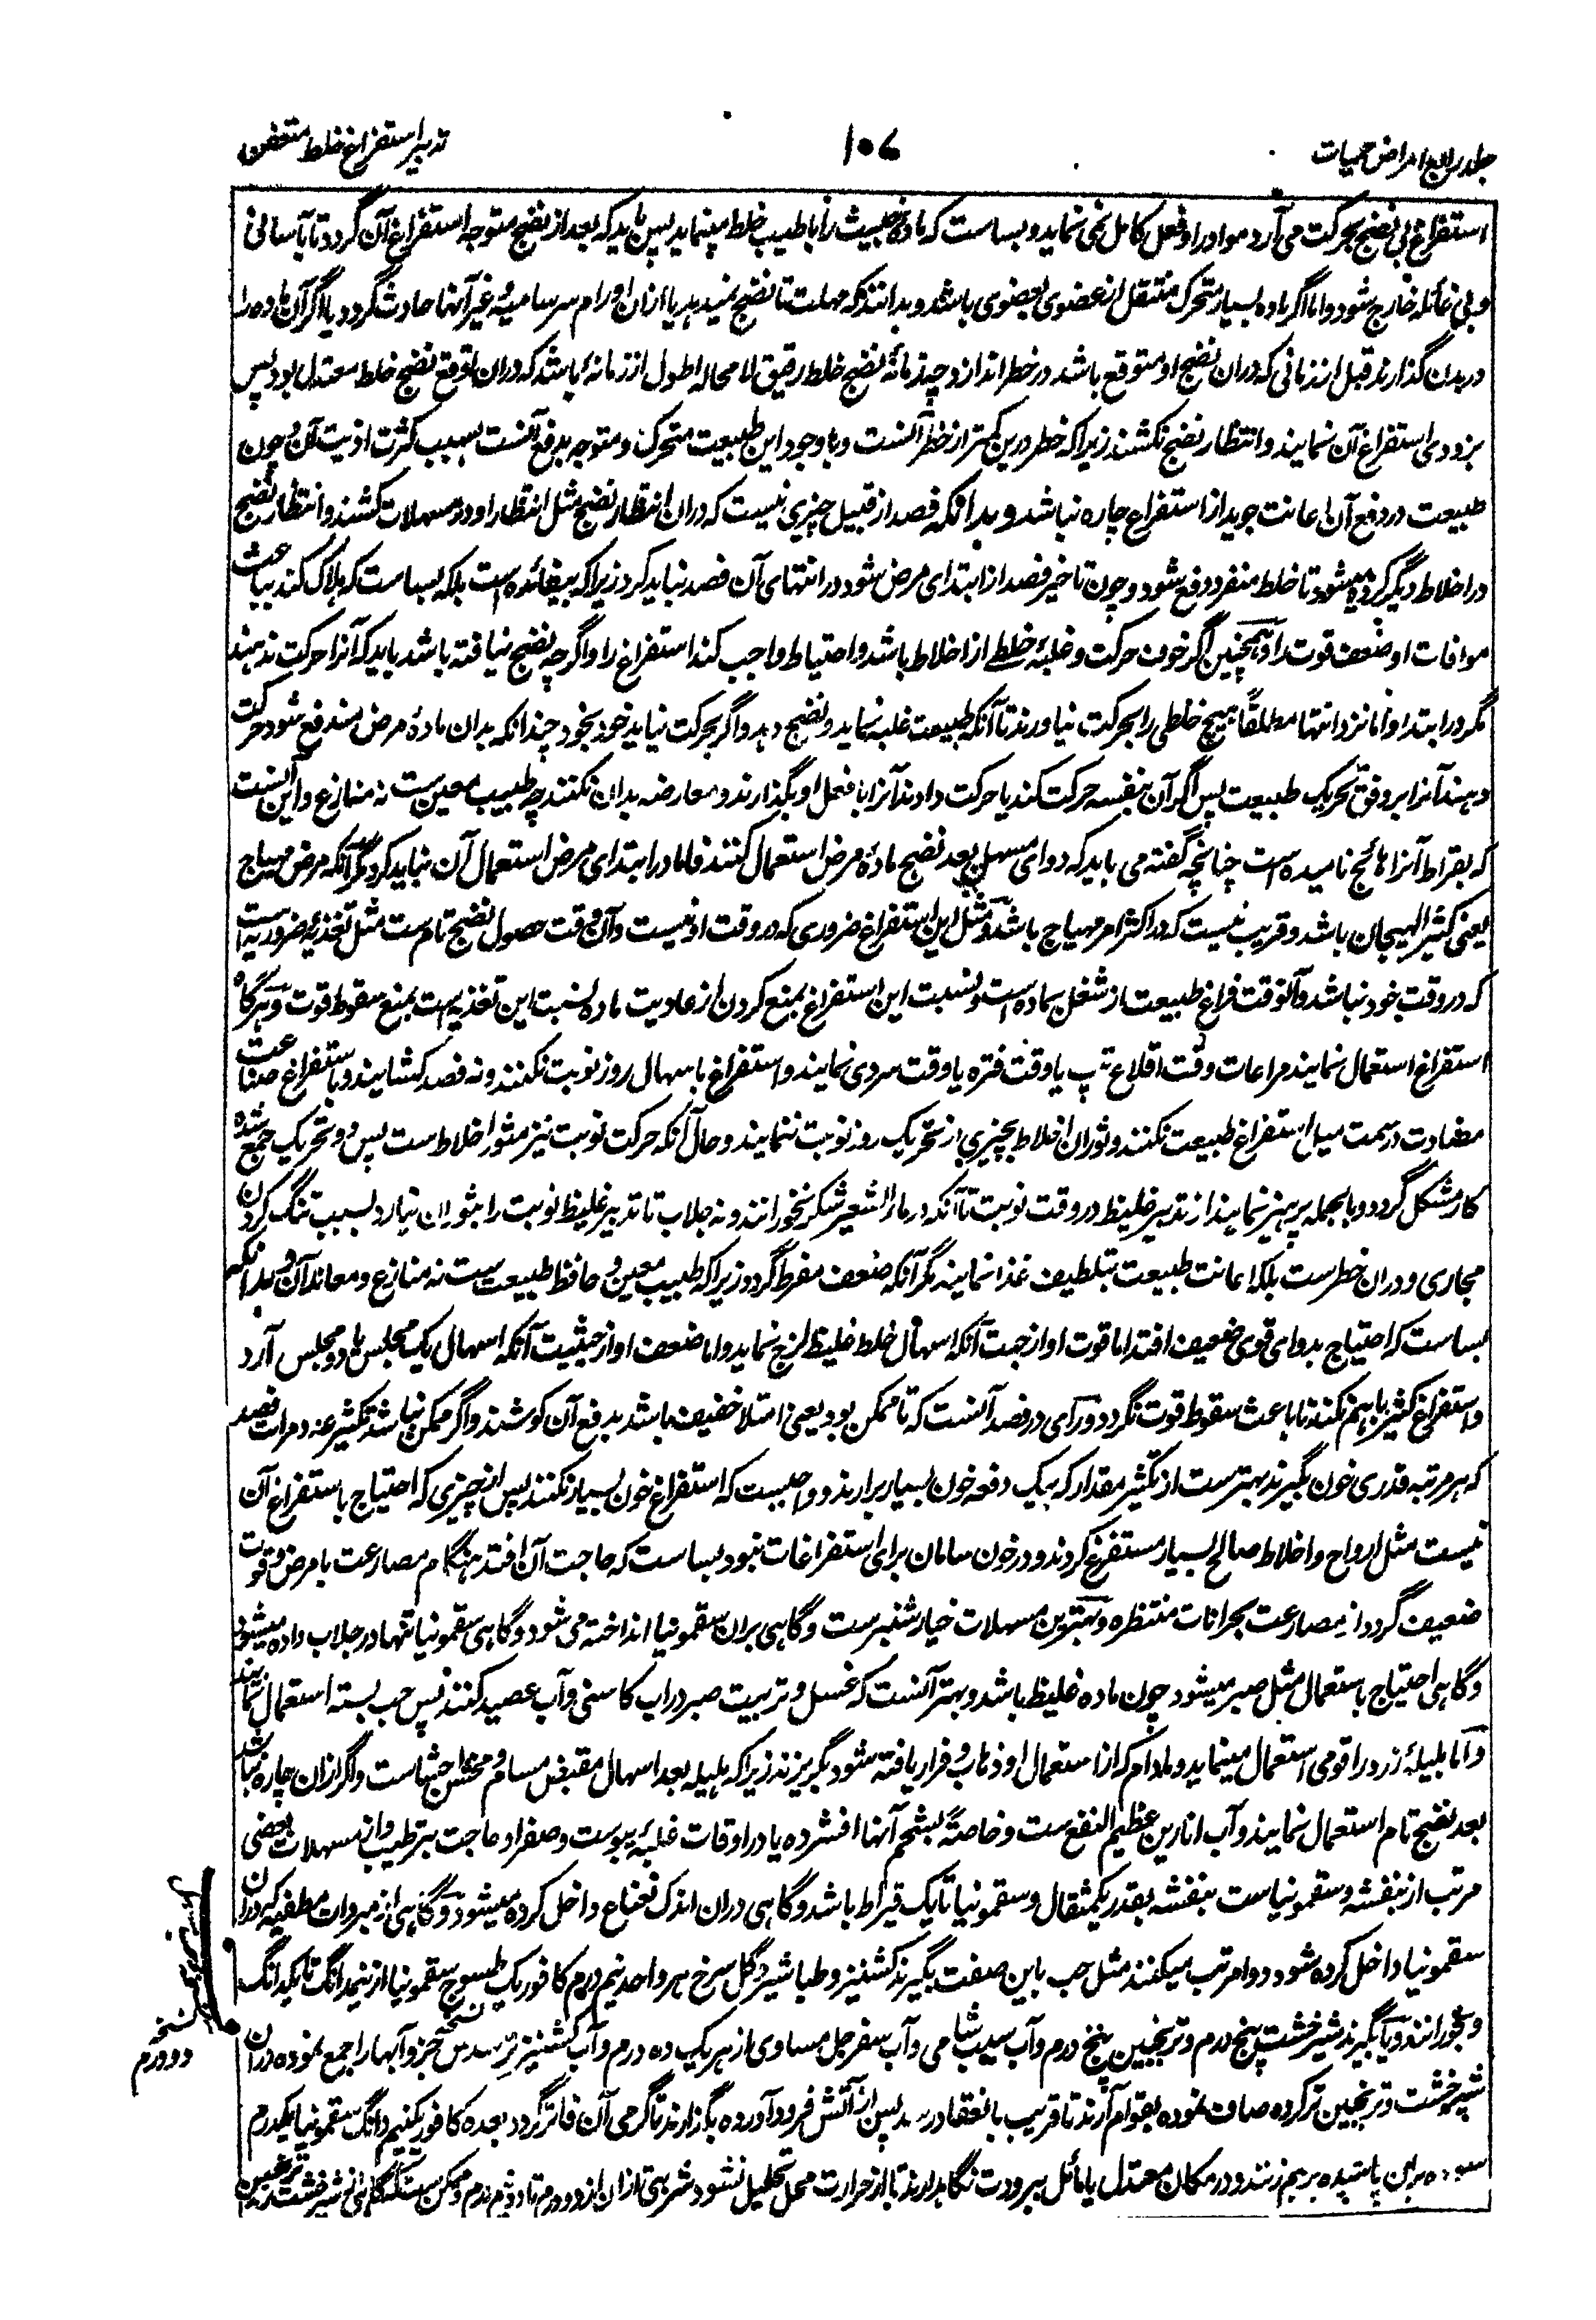 جلد رابع امراض حمیات
۱۰۶
تدبیر استفراغ خلط متعفن
استفراغ بی نضج بحرکت می آرد مواد را و فعل کامل نمی نماید و بساست که مادهٔ خبیث را با طیب خلط مینماید پس باید که بعد از نضج متوجه استفراغ آن گردد تا بآسانی
و بی غائله خارج شود و اما اگر ماده بسیار متحرک منتقل از عضوی بعضوی باشد و بدانند که مهلت تا نضج نمیدهد یا ازان اورام سرسامیه و غیر آنها حادث گردد یا اگر آن ماده را
در بدن گذارند قبل از زمانی که دران نضج او متوقع باشد در خطر اندازد چه زمانهٔ نضج خلط رقیق لا محاله اطول از زمانهٔ باشد که دران توقع نضج خلط معتدل بود پس
بزودی استفراغ آن نمایند و انتظار نضج نکشند زیرا که خطر درین کمتر از خطر آنست و با وجود این طبیعت متحرک و متوجه بدفع آنست بسبب کثرت اذیت آن و چون
طبیعت در دفع آن اعانت جوید از استفراغ چاره نباشد و بدانکه فصد از قبیل چیزی نیست که دران انتظار نضج مثل انتظار او در مسهلات کشند و انتظار نضج
در اخلاط دیگر کرده میشود تا خلط منفرد دفع شود و چون تاخیر فصد از ابتدای مرض شود در انتهای آن فصد نباید کرد زیرا که بیفائده است بلکه بساست که هلاک کند بباعث
موافات او ضعف قوت را و همچنین اگر خوف حرکت و غلبهٔ خلطی از اخلاط باشد و احتیاط واجب کند استفراغ را و اگرچه نضج نیافته باشد باید که آنرا حرکت ندهند
مگر در ابتدا و اما نزد انتها مطلقاً هیچ خلطی را بحرکت نیاورند تا آنکه طبیعت غلبه نماید و نضج دهد و اگر بحرکت نیاید خود بخود چندانکه بدان مادهٔ مرض مندفع شود حرکت
دهند آنرا بر وفق تحریک طبیعت پس اگر آن بنفسه حرکت کند یا حرکت دادند آنرا با فعل او بگذارند و معارضه بدان نکنند چه طبیب معین ست نه منازع و این آنست
که بقراط آنرا هائج نامیده است چنانچه گفته می باید که دوای مسهل بعد نضج مادهٔ مرض استعمال کنند فاما در ابتدای مرض استعمال آن نباید کرد مگر آنکه مرض مهیاج
یعنی کثیر الهیجان باشد و قریب نیست که در اکثر امر مهیاج باشد و مثل این استفراغ ضروری که در وقت او نیست و آن وقت حصول نضج تام ست مثل تغذیهٔ ضروریه است
که در وقت خود نباشد و آنوقت فراغ طبیعت از شغل بماده است و نسبت این استفراغ بمنع کردن از عادیت ماده نسبت این تغذیه است بمنع سقوط قوت و هرگاه
استفراغ استعمال نمایند مراعات وقت اقلاع تپ یا وقت فتره یا وقت سردی نمایند و استفراغ باسهال روز نوبت نکنند و نه فصد کشایند و باستفراغ صناعت
مضادت درسمت میل استفراغ طبیعت نکنند و ثوران اخلاط بچیزی از تحریک روز نوبت ننمایند و حال آنکه حرکت نوبت نیز مثور اخلاط ست پس دو تحریک جمع شده
کار مشکل گردد و بالجمله پرهیز نمایند از تدبیر غلیظ در وقت نوبت تا آنکه در ماء الشعیر شکر نخورانند و نه جلاب تا تدبیر غلیظ نوبت را بثوران نیارد بسبب تنگ کردن
مجاری و دران خطرست بلکه اعانت طبیعت بتلطیف غذا نمایند مگر آنکه ضعف مفرط گردد زیرا که طبیب معین و حافظ طبیعت ست نه منازع و معاند آن و بدانکه
بساست که احتیاج بدوای قوی ضعیف افتد اما قوت او از جهت آنکه اسهال خلط غلیظ لزج نماید و اما ضعف او از حیثیت آنکه اسهال یک مجلس یا دو مجلس آرد
و استفراغ کثیر باهم نکنند تا باعث سقوط قوت نگردد و رای در فصد آنست که تا ممکن بود یعنی امتلا خفیف باشد بدفع آن کوشند و اگر ممکن نباشد تکثیر عدد مرات فصد
که هر مرتبه قدری خون بگیرند بهترست از تکثیر مقدار که بیک دفعه خون بسیار برارند و واجبست که استفراغ خون بسیار نکنند پس از چیزی که احتیاج باستفراغ آن
نیست مثل ارواح و اخلاط صالح بسیار مستفرغ گردند و در خون سامان برای استفراغات نبود بساست که حاجت آن افتد هنگام مصارعت با مرض و قوت
ضعیف گردد از مصارعت بحرانات منتظره و بهترین مسهلات خیارشنبرست و گاهی بران سقمونیا انداخته می شود و گاهی سقمونیا تنها در جلاب داده میشود
و گاهی احتیاج باستعمال مثل صبر میشود چون ماده غلیظ باشد و بهتر آنست که غسل و تربیت صبر دراب کاسنی و آب عصید کنند پس حب بسته استعمال نمایند
و اما هلیلهٔ زرد را قومی استعمال مینماید و مادام که از استعمال او ذهاب و فرار یافته شود بگریزند زیرا که هلیله بعد اسهال مقبض مسام و مخشن احشاست و اگر ازان چاره نباشد
بعد نضج تام استعمال نمایند و آب انارین عظیم النفع ست و خاصةً بشحم آنها افشرده یا در اوقات غلبهٔ یبوست و صفرا و حاجت بترطیب و از مسهلات بعضی
مرتب از بنفشه و سقمونیاست بنفشه بقدر یکمثقال و سقمونیا تا یک قیراط باشد و گاهی دران اندک نعناع داخل کرده میشود و گاهی از مبردات مطفیه که دران
سقمونیا داخل کرده شود دوا مرتب میکنند مثل حب باین صفت بگیرند کشنیز و طباشیر و گل سرخ هر واحد نیم درم کافور یک طسوج سقمونیا از نیمدانگ تا یکدانگ
و بخورانند و یا بگیرند شیرخشت پنج درم و ترنجبین پنج درم و آب سیب شامی و آب سفرجل مساوی از هریک ده درم و آب کشنیز تر سدس جزو آبها را جمع نموده دران
شیرخشت و ترنجبین تر کرده صاف نموده بقوام آرند تا قریب بانعقاد رسد پس از آتش فرود آورده بگزارند تا گرمی آن فاتر گردد بعده کافور یکنیم دانگ سقمونیا یکدرم
سوده بران پاشیده برهم زنند و در مکان معتدل یا مائل ببرودت نگاهدارند تا از حرارت محل تحلیل نشود شربتی ازان از دو درم تا دو نیم درم و ممکن ست که گاهی شیرخشت
نسخه
دو درم